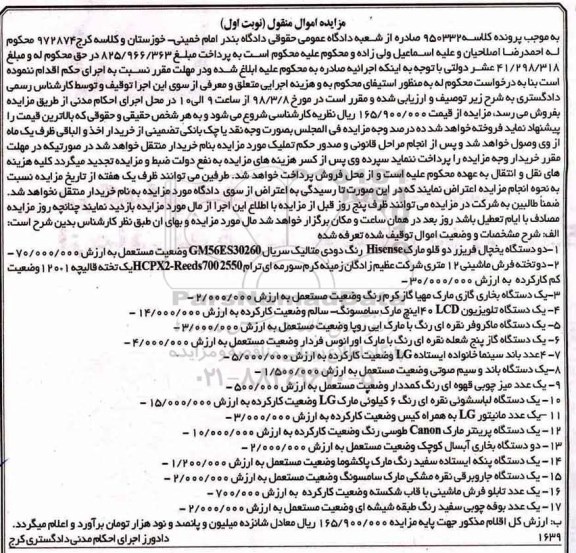 مزایده اموال منقول (نوبت اول)
به موجب پرونده کلاسه۹۵۰۳۳۲ صادره از شعبه دادگاه عمومی حقوقی دادگاه بندر امام خمینی- خوزستان و کلاسه کرج۹۷۲۸۷۴ محکوم
له احمدرضا اصلاحیان و علیه اسماعیل ولی زاده و محکوم علیه محکوم است به پرداخت مبلغ ۸۲۵/۹۶۶/۳۶۳ در حق محکوم له و مبلغ
۴۱/۲۹۸/۳۱۸ عشر دولتی با توجه به اینکه اجرائیه صادره به محکوم علیه ابلاغ شده ودر مهلت مقرر نسبت به اجرای حکم اقدام ننموده
است بنا به درخواست محکوم له به منظور استیفای محکوم به و هزینه اجرایی متعلق و معرفی از سوی این اجرا توقیف و توسط کارشناس رسمی
دادگستری به شرح زیر توصیف و ارزیابی شده و مقرر است در مورخ ۹۸/۳/۸ از ساعت ۹ الی۱۰ در محل اجرای احکام مدنی از طریق مزایده
بفروش می رسد، مزایده از قیمت ۱۶۵/۹۰۰/۰۰۰ ریال نظریه کارشناسی شروع می شود و به هر شخص حقیقی و حقوقی که بالاترین قیمت را
پیشنهاد نماید فروخته خواهد شد ده درصد وجه مزایده فی المجلس بصورت وجه نقد یا چک بانکی تضمینی از خریدار اخذ و الباقی ظرف یک ماه
از وی وصول خواهد شد و پس از انجام مراحل قانونی و صدور حکم تملیک مورد مزایده بنام خریدار منتقل خواهد شد در صورتیکه در مهلت
مقرر خریدار وجه مزایده را پرداخت ننماید سپرده وی پس از کسر هزینه های مزایده به نفع دولت ضبط و مزایده تجدید میگردد کلیه هزینه
های نقل و انتقال به عهده محکوم علیه است و از محل فروش پرداخت خواهد شد. طرفین می توانند ظرف یک هفته از تاریخ مزایده نسبت
به نحوه انجام مزایده اعتراض نمایند که در این صورت تا رسیدگی به اعتراض از سوی دادگاه مورد مزایده به نام خریدار منتقل نخواهد شد.
ضمناً طالبین به شرکت در مزایده می توانند ظرف پنج روز قبل از مزایده با اطلاع این اجرا از مال مورد مزایده بازدید نمایند چنانچه روز مزایده
مصادف با ایام تعطیل باشد روز بعد در همان ساعت و مکان برگزار خواهد شد مال مورد مزایده و بهای آن طبق نظر کارشناس بدین شرح است:
الف: شرح مشخصات و وضعیت اموال توقیف شده تعرفه شده
۱-دو دستگاه یخچال فریزر دو قلو مارک Hisense رنگ دودی متالیک سریال GM56ES30260 وضعیت مستعمل به ارزش ۷۰/۰۰۰/۰۰۰-
۲-دوتخته فرش ماشینی ۱۲ متری شرکت عظیم زادگان زمینه کرم سورمه ای ترام HCPX2-Reeds700 2550 یک تخته قالیچه ۱۲۰۱ وضعیت
کم کارکرده به ارزش ۳۰/۰۰۰/۰۰۰-
۳-یک دستگاه بخاری گازی مارک مهیا گاز کرم رنگ وضعیت مستعمل به ارزش ۲/۰۰۰/۰۰۰-
۴- یک دستگاه تلویزیون LCD ۴۰اینچ مارک سامسونگ- سالم وضعیت کارکرده به ارزش ۱۴/۰۰۰/۰۰۰-
۵- یک دستگاه ماکروفر نقره ای رنگ با مارک ایی روپا وضعیت مستعمل به ارزش ۳/۰۰۰/۰۰۰-
۶- یک دستگاه گاز پنج شعله نقره ای رنگ با مارک اورانوس فردار وضعیت مستعمل به ارزش ۴/۰۰۰/۰۰۰-
۷-۴عدد باند سینما خانواده ایستاده LG وضعیت کارکرده به ارزش ۵/۰۰۰/۰۰۰-
۸-یک دستگاه باند و سیم صوتی وضعیت مستعمل به ارزش ۱/۵۰۰/۰۰۰-
۹-یک عدد میز چوبی قهوه ای رنگ کمددار وضعیت مستعمل به ارزش ۵۰۰/۰۰۰-
۱۰- یک دستگاه لباسشوئی نقره ای رنگ ۶ کیلوئی مارک LG وضعیت کارکرده به ارزش ۱۵/۰۰۰/۰۰۰-
۱۱-یک عدد مانیتور LG به همراه کیس وضعیت کارکرده به ارزش ۳/۰۰۰/۰۰۰-
۱۲- یک دستگاه پرینتر مارک Canon طوسی رنگ وضعیت کارکرده به ارزش ۱۰/۰۰۰/۰۰۰-
۱۳- دو دستگاه بخاری آبسال کوچک وضعیت مستعمل به ارزش ۲/۰۰۰/۰۰۰-
۱۴- یک دستگاه پنکه ایستاده سفید رنگ مارک پاکشوما وضعیت مستعمل به ارزش ۱/۲۰۰/۰۰۰-
۱۵- یک دستگاه جاروبرقی نقره مشکی مارک سامسونگ وضعیت مستعمل به ارزش ۲/۰۰۰/۰۰۰-
۱۶- یک عدد تابلو فرش ماشینی با قاب شکسته وضعیت کارکرده به ارزش ۷۰۰/۰۰۰-
۱۷- یک عدد بوفه چوبی سفید رنگ طبقه شیشه ای وضعیت مستعمل به ارزش ۲/۰۰۰/۰۰۰-
ب: ارزش کل اقلام مذکور جهت پایه مزایده ۱۶۵/۹۰۰/۰۰۰ ریال معادل شانزده میلیون و پانصد و نود هزار تومان برآورد و اعلام میگردد.
۱۶۳۹ دادورز اجرای احکام مدنی دادگستری کرج